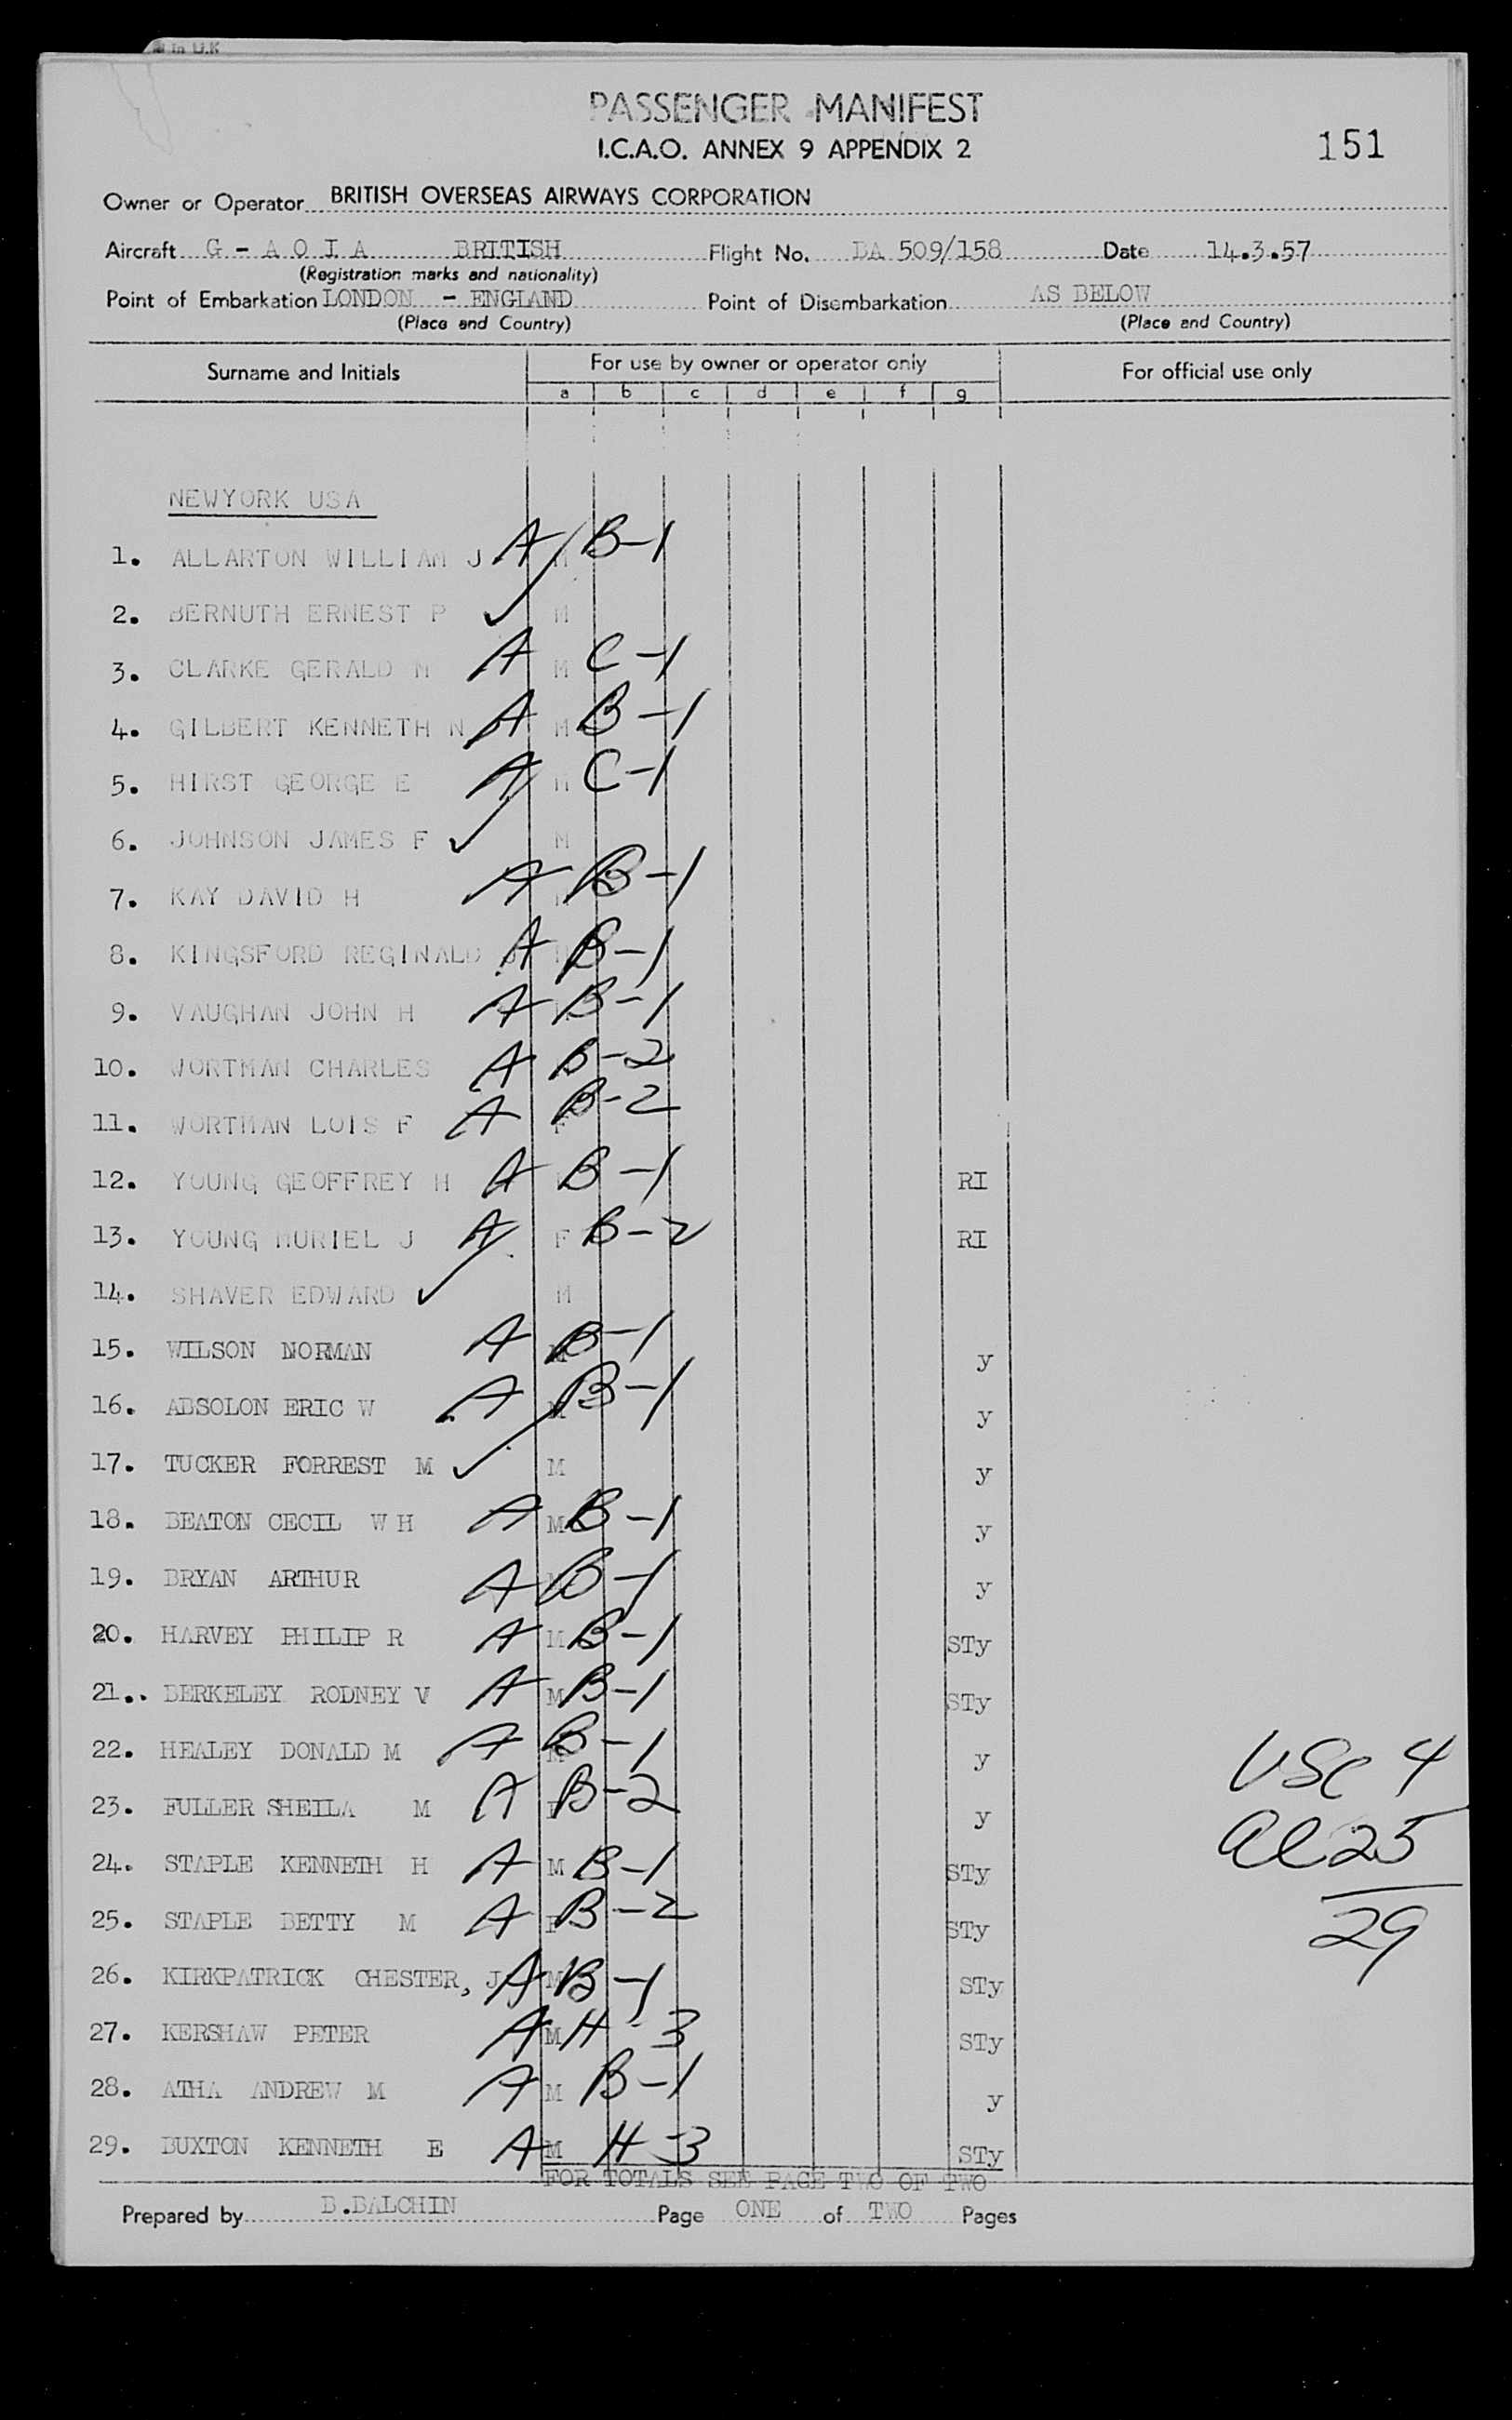 In U.K
PASSENGER MANIFEST
I.C.A.O. ANNEX 9 APPENDIX 2
151
Owner or Operator BRITISH OVERSEAS AIRWAYS CORPORATION
Aircraft G - A O I A BRITISH Flight No. BA 509/158 Date 14.3.57
(Registration marks and nationality)
Point of Embarkation LONDON - ENGLAND Point of Disembarkation AS BELOW
(Place and Country) (Place and Country)
Surname and Initials For use by owner or operator only For official use only
a b c d e f g
NEWYORK USA
1. ALLARTON WILLIAM J A M B-1
2. BERNUTH ERNEST P ✓ M
3. CLARKE GERALD M A M C-1
4. GILBERT KENNETH N A M B-1
5. HIRST GEORGE E A M C-1
6. JOHNSON JAMES F ✓ M
7. KAY DAVID H A M B-1
8. KINGSFORD REGINALD A B-1
9. VAUGHAN JOHN H A B-1
10. WORTMAN CHARLES A B-2
11. WORTMAN LOIS F A F B-2
12. YOUNG GEOFFREY H A B-1 RI
13. YOUNG MURIEL J A F B-2 RI
14. SHAVER EDWARD ✓ M
15. WILSON NORMAN A M B-1 y
16. ABSOLON ERIC W A M B-1 y
17. TUCKER FORREST M ✓ M y
18. BEATON CECIL W H A M B-1 y
19. BRYAN ARTHUR A B-1 y
20. HARVEY PHILIP R A M B-1 STy
21.. BERKELEY RODNEY V A M B-1 STy
22. HEALEY DONALD M A M B-1 y
23. FULLER SHEILA M A F B-2 y
24. STAPLE KENNETH H A M B-1 STy
25. STAPLE BETTY M A F B-2 STy
26. KIRKPATRICK CHESTER, J A M B-1 STy
27. KERSHAW PETER A M H-3 STy
28. ATHA ANDREW M A M B-1 y
29. BUXTON KENNETH E A M H-3 STy
USC 4
al 25
29
FOR TOTALS SEE PAGE TWO OF TWO
Prepared by B.BALCHIN Page ONE of TWO Pages